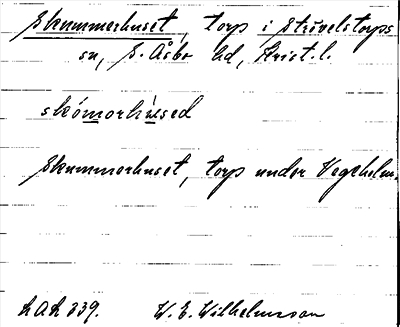 Skummerhuset, torp i Strövelstorps
sn, S. Åsbo hd, Krist. l.
skómorhúsed
Skummerhuset, torp under Vegeholm.
LAL 339. W. E. Wilhelmsson